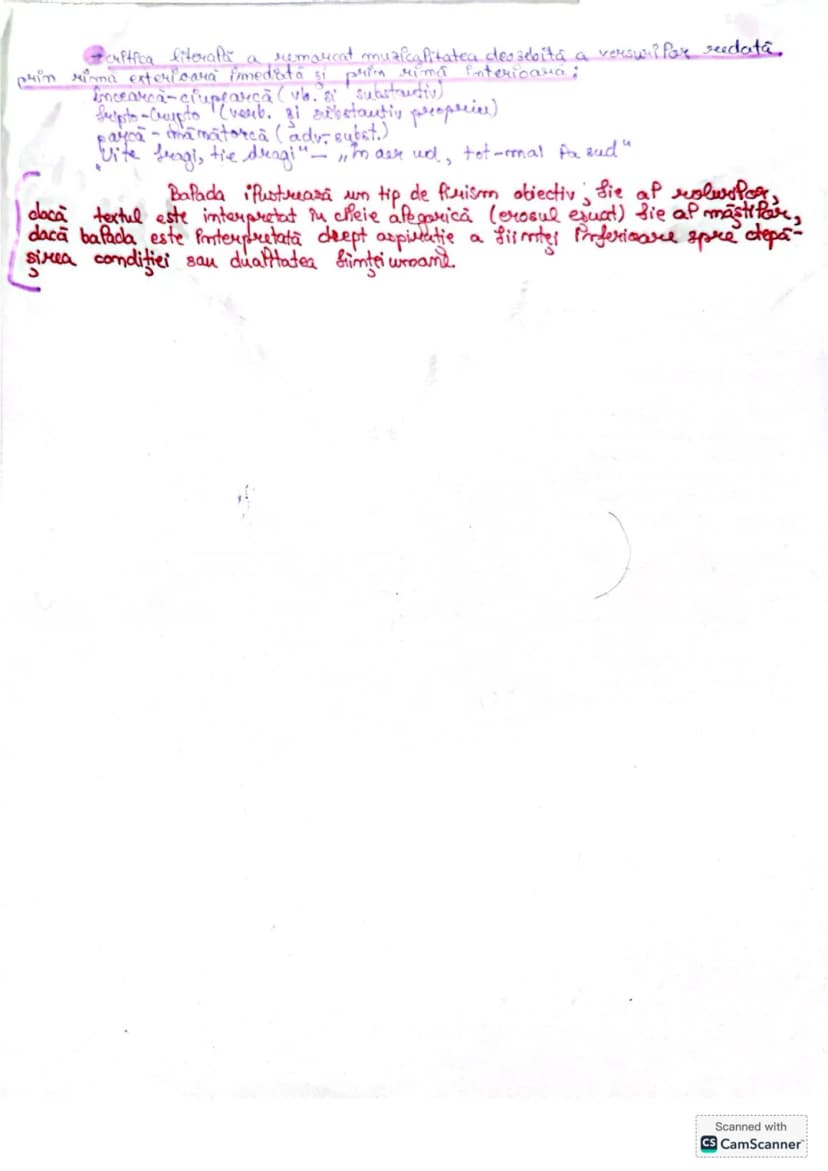 → critica literală a remarcat muzicalitatea deosebită a versurilor redată
prin rimă exterioară imediată și prin rimă interioară:
încearcă-ciupearcă (vb. și substantiv)
Scripto-Crypto (verb. și substantiv propriu)
parcă - mămătarcă (adv-subst.)
"Uite fragi, ție dragi" - „În aer ud, tot-mal la sud"
Balada ilustrează un tip de lirism obiectiv; fie al rolurilor,
dacă textul este interpretat în cheie alegorică (erosul eșuat) fie al măștilor,
dacă balada este interpretată drept aspirație a ființei inferioare spre depă-
șirea condiției sau dualitatea ființei umane.
Scanned with
CS CamScanner